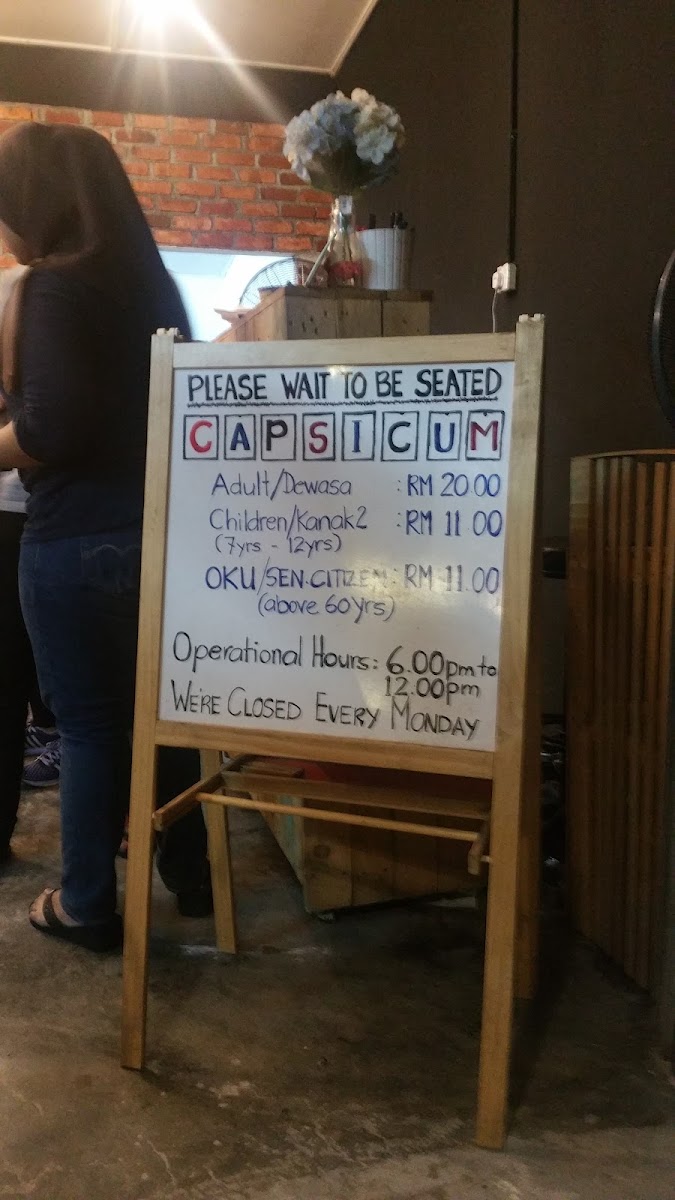 PLEASE WAIT TO BE SEATED
CAPSICUM
Adult/Dewasa : RM 20.00
Children/Kanak2 : RM 11.00
(7yrs - 12yrs)
OKU/SEN.CITIZEN : RM 11.00
(above 60yrs)
Operational Hours: 6.00pm to
12.00pm
WE'RE CLOSED EVERY MONDAY